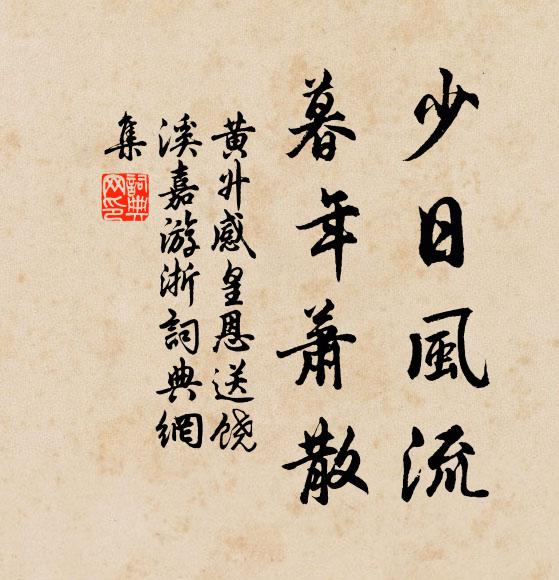 少日風流
暮年蕭散
黄升感皇恩送饶
溪嘉游浙詞典網
集
詞典網印